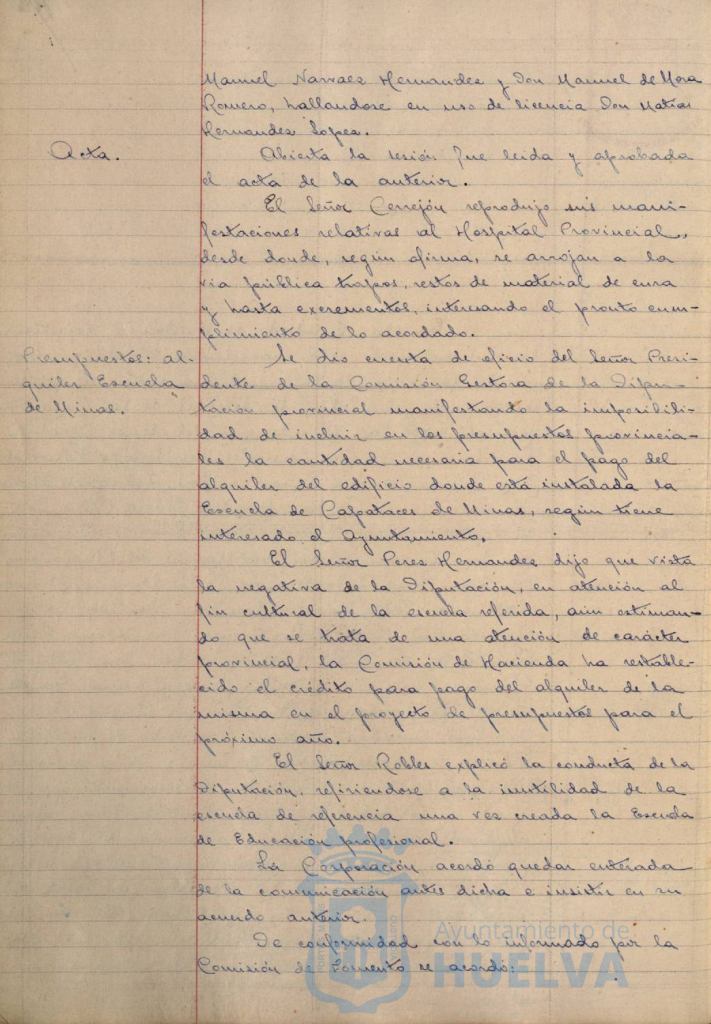 Manuel Narvaez Hernandez y Don Manuel de Mora
Romero, hallandose en uso de licencia Don Matias
Hernandez Lopez.
Acta.
Abierta la sesión fue leida y aprobada
el acta de la anterior.
El Señor Cerrejón reprodujo sus mani-
festaciones relativas al Hospital Provincial,
desde donde, según afirma, se arrojan a la
via pública trapos, restos de material de cura
y hasta excrementos, interesando el pronto cum-
plimiento de lo acordado.
Presupuestos: al-
quiler Escuela
de Minas.
Se dio cuenta de oficio del Señor Presi-
dente de la Comisión Gestora de la Dipu-
tación provincial manifestando la imposibili-
dad de incluir en los presupuestos provincia-
les la cantidad necesaria para el pago del
alquiler del edificio donde está instalada la
Escuela de Capataces de Minas, según tiene
interesado el Ayuntamiento.
El Señor Perez Hernandez dijo que vista
la negativa de la Diputación, en atención al
fin cultural de la escuela referida, aun estiman-
do que se trata de una atención de carácter
provincial, la Comisión de Hacienda ha restable-
cido el crédito para pago del alquiler de la
misma en el proyecto de presupuestos para el
próximo año.
El Señor Robles explicó la conducta de la
Diputación, refiriendose a la inutilidad de la
escuela de referencia una vez creada la Escuela
de Educación profesional.
La Corporación acordó quedar enterada
de la comunicación antes dicha e insistir en su
acuerdo anterior.
De conformidad con lo informado por la
Comisión de Fomento se acordó:
Ayuntamiento de
HUELVA